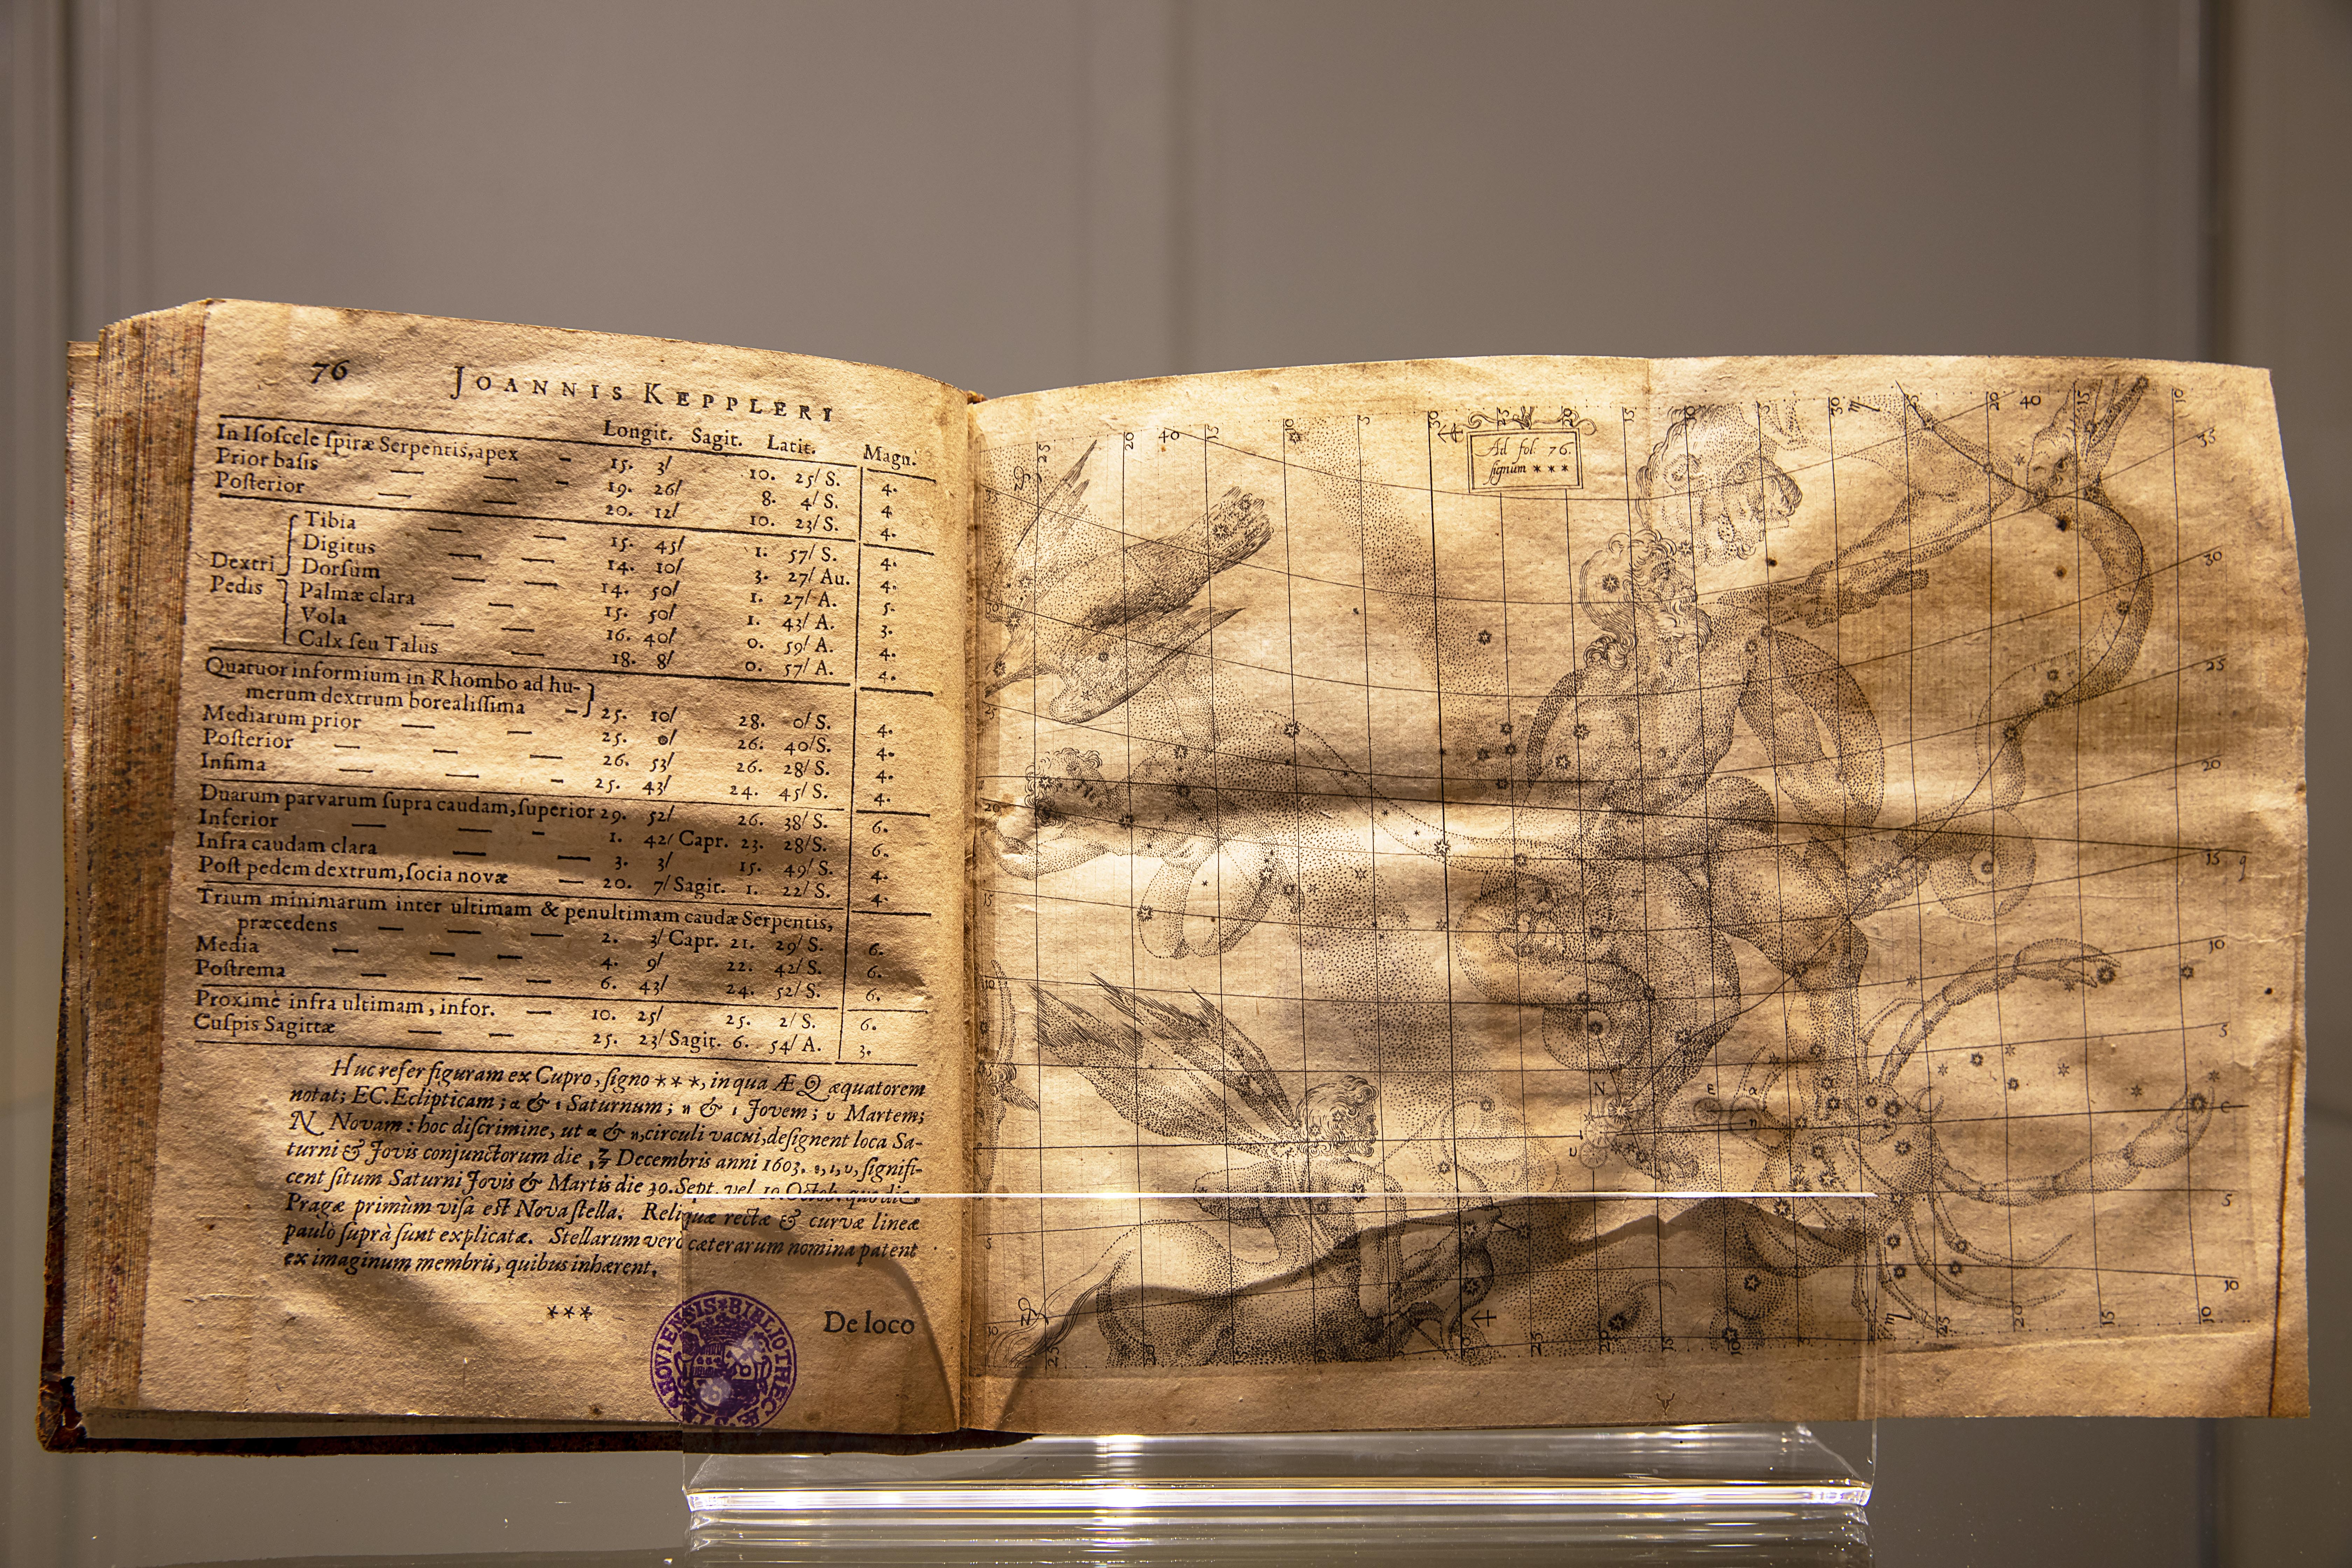 76 JOANNIS KEPPLERI
Longit. Sagit. Latit. Magn.
In Iſoſcele ſpiræ Serpentis, apex — 15. 3/ 10. 25/ S. 4.
Prior baſis — — — 19. 26/ 8. 4/ S. 4
Poſterior — — — 20. 12/ 10. 23/ S. 4.
Dextri Pedis
Tibia — — 15. 45/ 1. 57/ S. 4.
Digitus — — 14. 10/ 3. 27/ Au. 4.
Dorſum — — 14. 50/ 1. 27/ A. 5.
Palmæ clara — 15. 50/ 1. 43/ A. 3.
Vola — — 16. 40/ 0. 59/ A. 4.
Calx ſeu Talus — 18. 8/ 0. 57/ A. 4.
Quatuor informium in Rhombo ad hu-
merum dextrum borealiſſima — 25. 10/ 28. 0/ S. 4.
Mediarum prior — — 25. 0/ 26. 40/ S. 4.
Poſterior — — — 26. 53/ 26. 28/ S. 4.
Infima — — - 25. 43/ 24. 45/ S. 4.
Duarum parvarum ſupra caudam, ſuperior 29. 52/ 26. 38/ S. 6.
Inferior — — - 1. 42/ Capr. 23. 28/ S. 6.
Infra caudam clara — — 3. 3/ 15. 49/ S. 4.
Poſt pedem dextrum, ſocia novæ — 20. 7/ Sagit. 1. 22/ S. 4.
Trium minimarum inter ultimam & penultimam caudæ Serpentis,
præcedens — — — 2. 3/ Capr. 21. 29/ S. 6.
Media — — — 4. 9/ 22. 42/ S. 6.
Poſtrema — — — 6. 43/ 24. 52/ S. 6.
Proximè infra ultimam, infor. — 10. 25/ 25. 2/ S. 6.
Cuſpis Sagittæ — — 25. 23/ Sagit. 6. 54/ A. 3.
Huc refer figuram ex Cupro, ſigno ***, in qua Æ Q æquatorem
notat; EC. Eclipticam; α & ε Saturnum; η & ι Jovem; υ Martem;
N Novam: hoc diſcrimine, ut α & η, circuli vacui, deſignent loca Sa-
turni & Jovis conjunctorum die Decembris anni 1603. ε, ι, υ, ſignifi-
cent ſitum Saturni Jovis & Martis die 30. Sept. vel 10 Octob. quo die
Pragæ primùm viſa eſt Nova ſtella. Reliquæ rectæ & curvæ lineæ
paulò ſuprà ſunt explicatæ. Stellarum verò cæterarum nomina patent
ex imaginum membris, quibus inhærent.
***
De loco
BIBLIOTHECÆ
Ad fol. 76.
ſignum ***
25 20 40 15 10 5 30 25 20 15 10 5 30 25 20 40 15 10
35
30
25
20
15
10
5
5
10
20
15
10
5
10
N
E
α
η
ι
υ
C
q
25 20 15 10 5 30 25 20 15 10 5 25 20 15 10